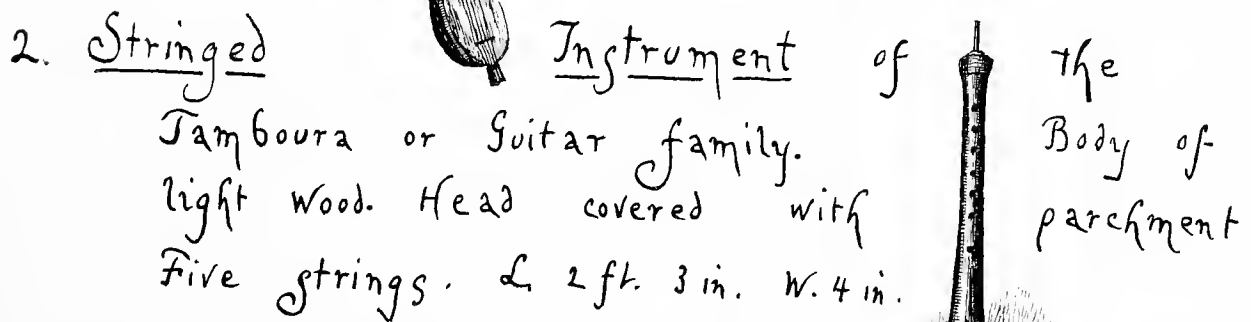 2. Stringed Instrument of the
Tamboura or Guitar family. Body of
light wood. Head covered with parchment
Five strings. L. 2 ft. 3 in. W. 4 in.